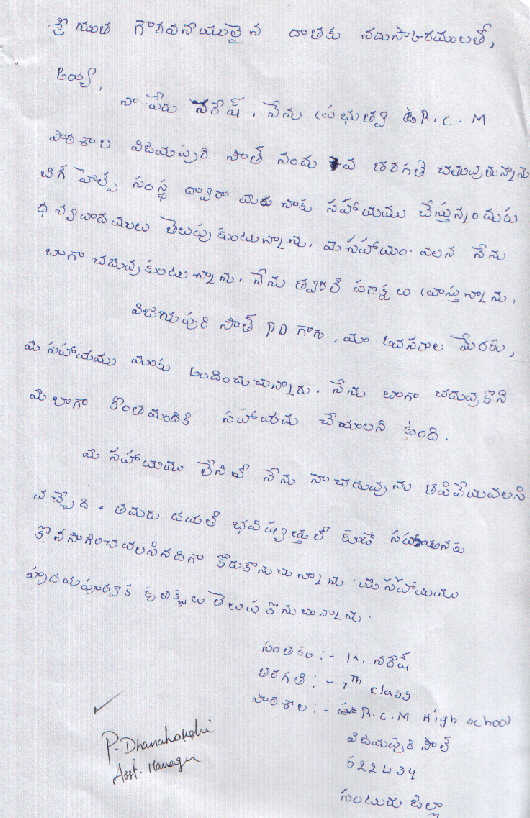 శ్రీయుత గౌరవనీయులైన దాతకు నమస్కారములతో,
అయ్యా,
నా పేరు నరేష్. నేను ప్రభుత్వ ఉ R.C.M
పాఠశాల విజయపురి సౌత్ నందు 7వ తరగతి చదువుతున్నాను
బిగ్ హెల్ప్ సంస్థ ద్వారా మీరు నాకు సహాయము చేస్తున్నందుకు
ధన్యవాదములు తెలుపుకుంటున్నాను. మీ సహాయం వలన నేను
బాగా చదువుకుంటున్నాను. నేను త్వరలో పరీక్షలు వ్రాస్తున్నాను.
విజయపురి సౌత్ PD గారు, మా అవసరాల మేరకు,
మీ సహాయము మాకు అందించుచున్నారు. నేను బాగా చదువుకొని
మీలాగా కొంతమందికి సహాయము చేయాలని ఉంది.
మీ సహాయము లేనిచో నేను నా చదువును ఆపివేయవలసి
వచ్చేది. తమరు దయతో భవిష్యత్తులో కూడా సహాయమును
కొనసాగించవలసినదిగా కోరుకొనుచున్నాను. మీ సహాయము
హృదయపూర్వక కృతజ్ఞతలు తెలుపుకొనుచున్నాను.
సంతకం :- K. నరేష్
తరగతి :- 7th class
పాఠశాల :- R.C.M High school
విజయపురి సౌత్
522439
గుంటూరు జిల్లా
P. Dhanalakshmi
Asst. Manager